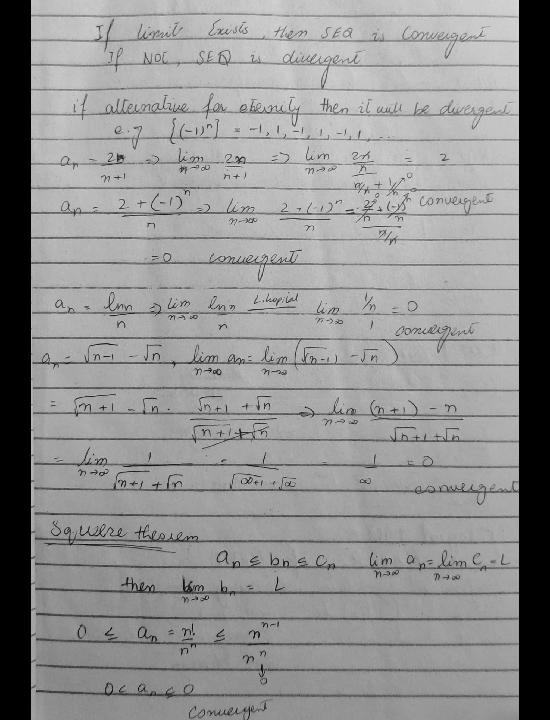 If limit Exists, then SEQ is Convergent
If NOT, SEQ is divergent
if alternative for eternity then it will be divergent
e.g {(-1)^n} = -1, 1, -1, 1, -1, 1, ...
a_n = 2n/(n+1) => lim n→∞ 2n/(n+1) => lim n→∞ (2n/n)/(n/n + 1/n→0) = 2 convergent
a_n = (2 + (-1)^n)/n => lim n→∞ (2 + (-1)^n)/n = (2/n→0 + (-1)^n/n→0)/(n/n)
= 0 convergent
a_n = ln n/n => lim n→∞ ln n/n L.hopital lim n→∞ (1/n)/1 = 0 convergent
a_n = √(n-1) - √n, lim n→∞ a_n = lim n→∞ (√(n-1) - √n)
= √(n+1) - √n . (√(n+1) + √n)/(√(n+1) + √n) => lim n→∞ ((n+1) - n)/(√(n+1) + √n)
= lim n→∞ 1/(√(n+1) + √n) = 1/(√(∞+1) + √∞) = 1/∞ = 0
convergent
Squeeze theorem
a_n ≤ b_n ≤ c_n lim n→∞ a_n = lim n→∞ c_n = L
then lim n→∞ b_n = L
0 ≤ a_n = n!/n^n ≤ n^(n-1)/n^n
↓
0
0 < a_n ≤ 0
Convergent